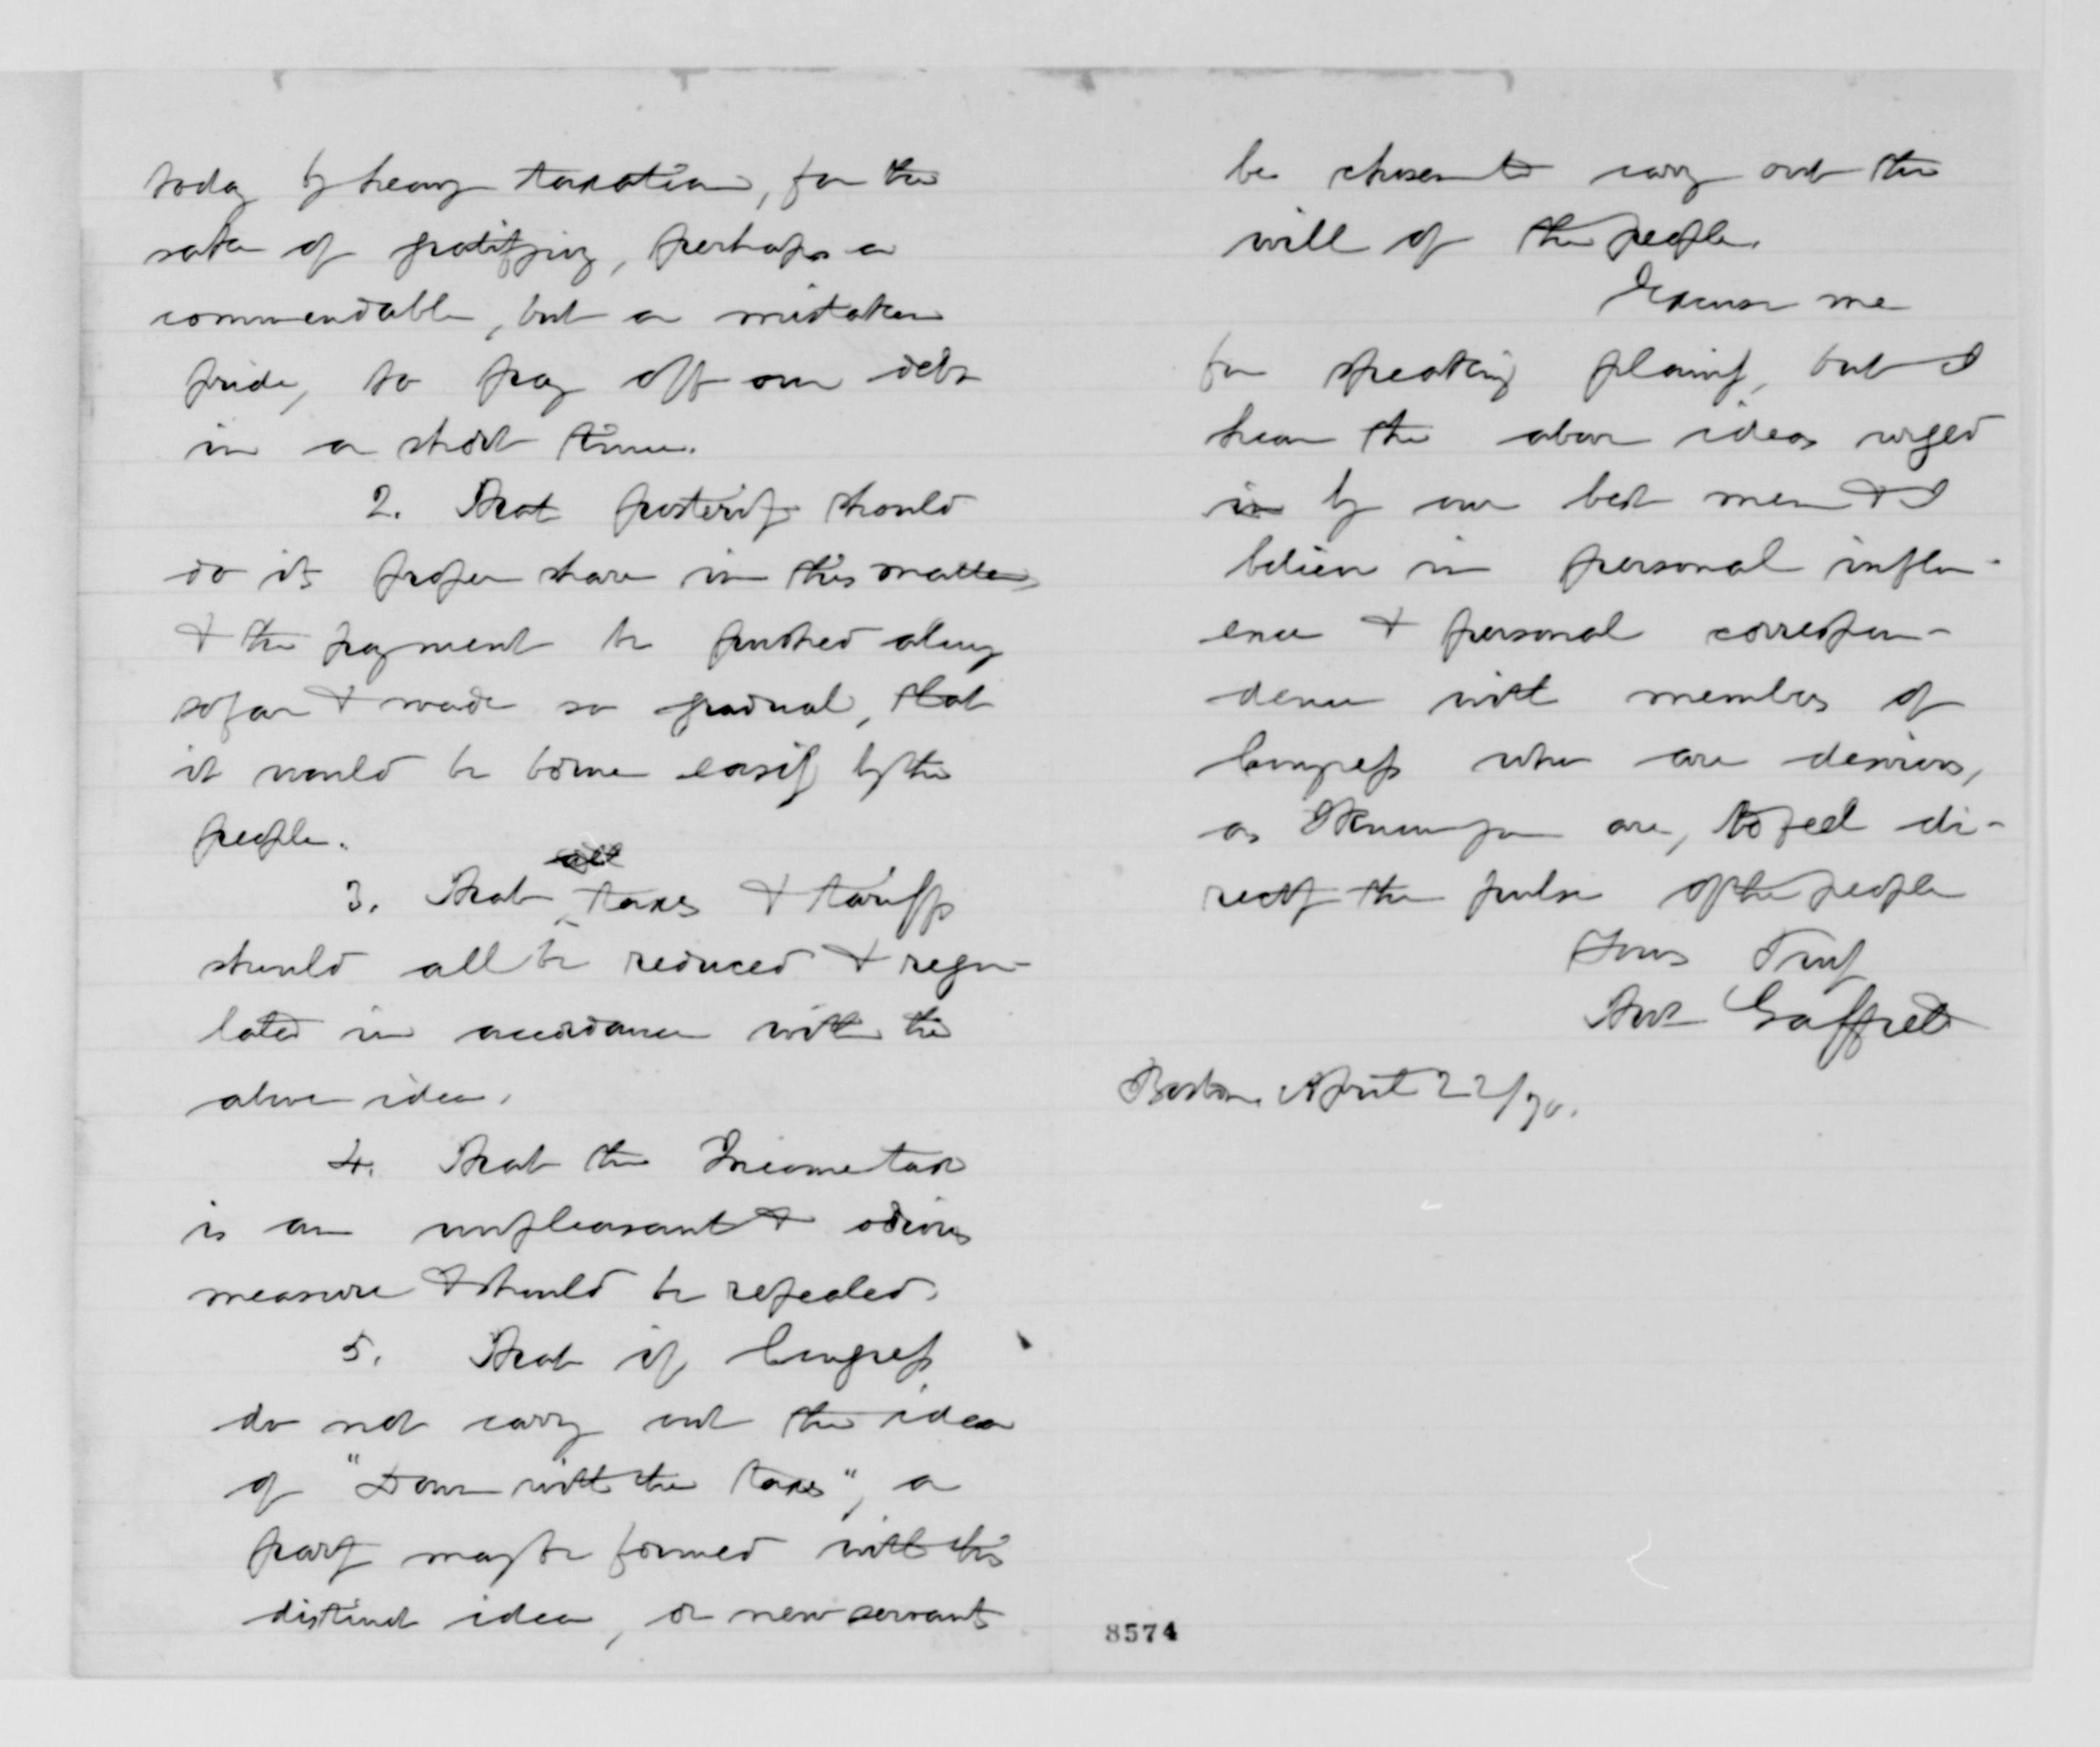 today by heavy taxation, for the
sake of gratifying, perhaps a
commendable, but a mistaken
pride, to pay off our debt
in a short time.
2. That posterity should
do its proper share in this matter,
& the payment be pushed along
so far & made so gradual, that
it would be borne easily by the
people.
3. That taxes & tariffs
should all be reduced & regu-
lated in accordance with the
above idea.
4. That the Income tax
is an unpleasant & odious
measure & should be repealed.
5. That if Congress
do not carry out the idea
of "Down with the taxes", a
party may be formed with this
distinct idea, or new servants
be chosen to carry out the
will of the people.
Excuse me
for speaking plainly, but I
hear the above ideas urged
in by our best men & I
believe in personal influ-
ence & personal correspon-
dence with members of
Congress who are desirous,
as I know you are, to feel di-
rectly the pulse of the people
Yours Truly
Gaffield
Boston. April 22/70.
8574